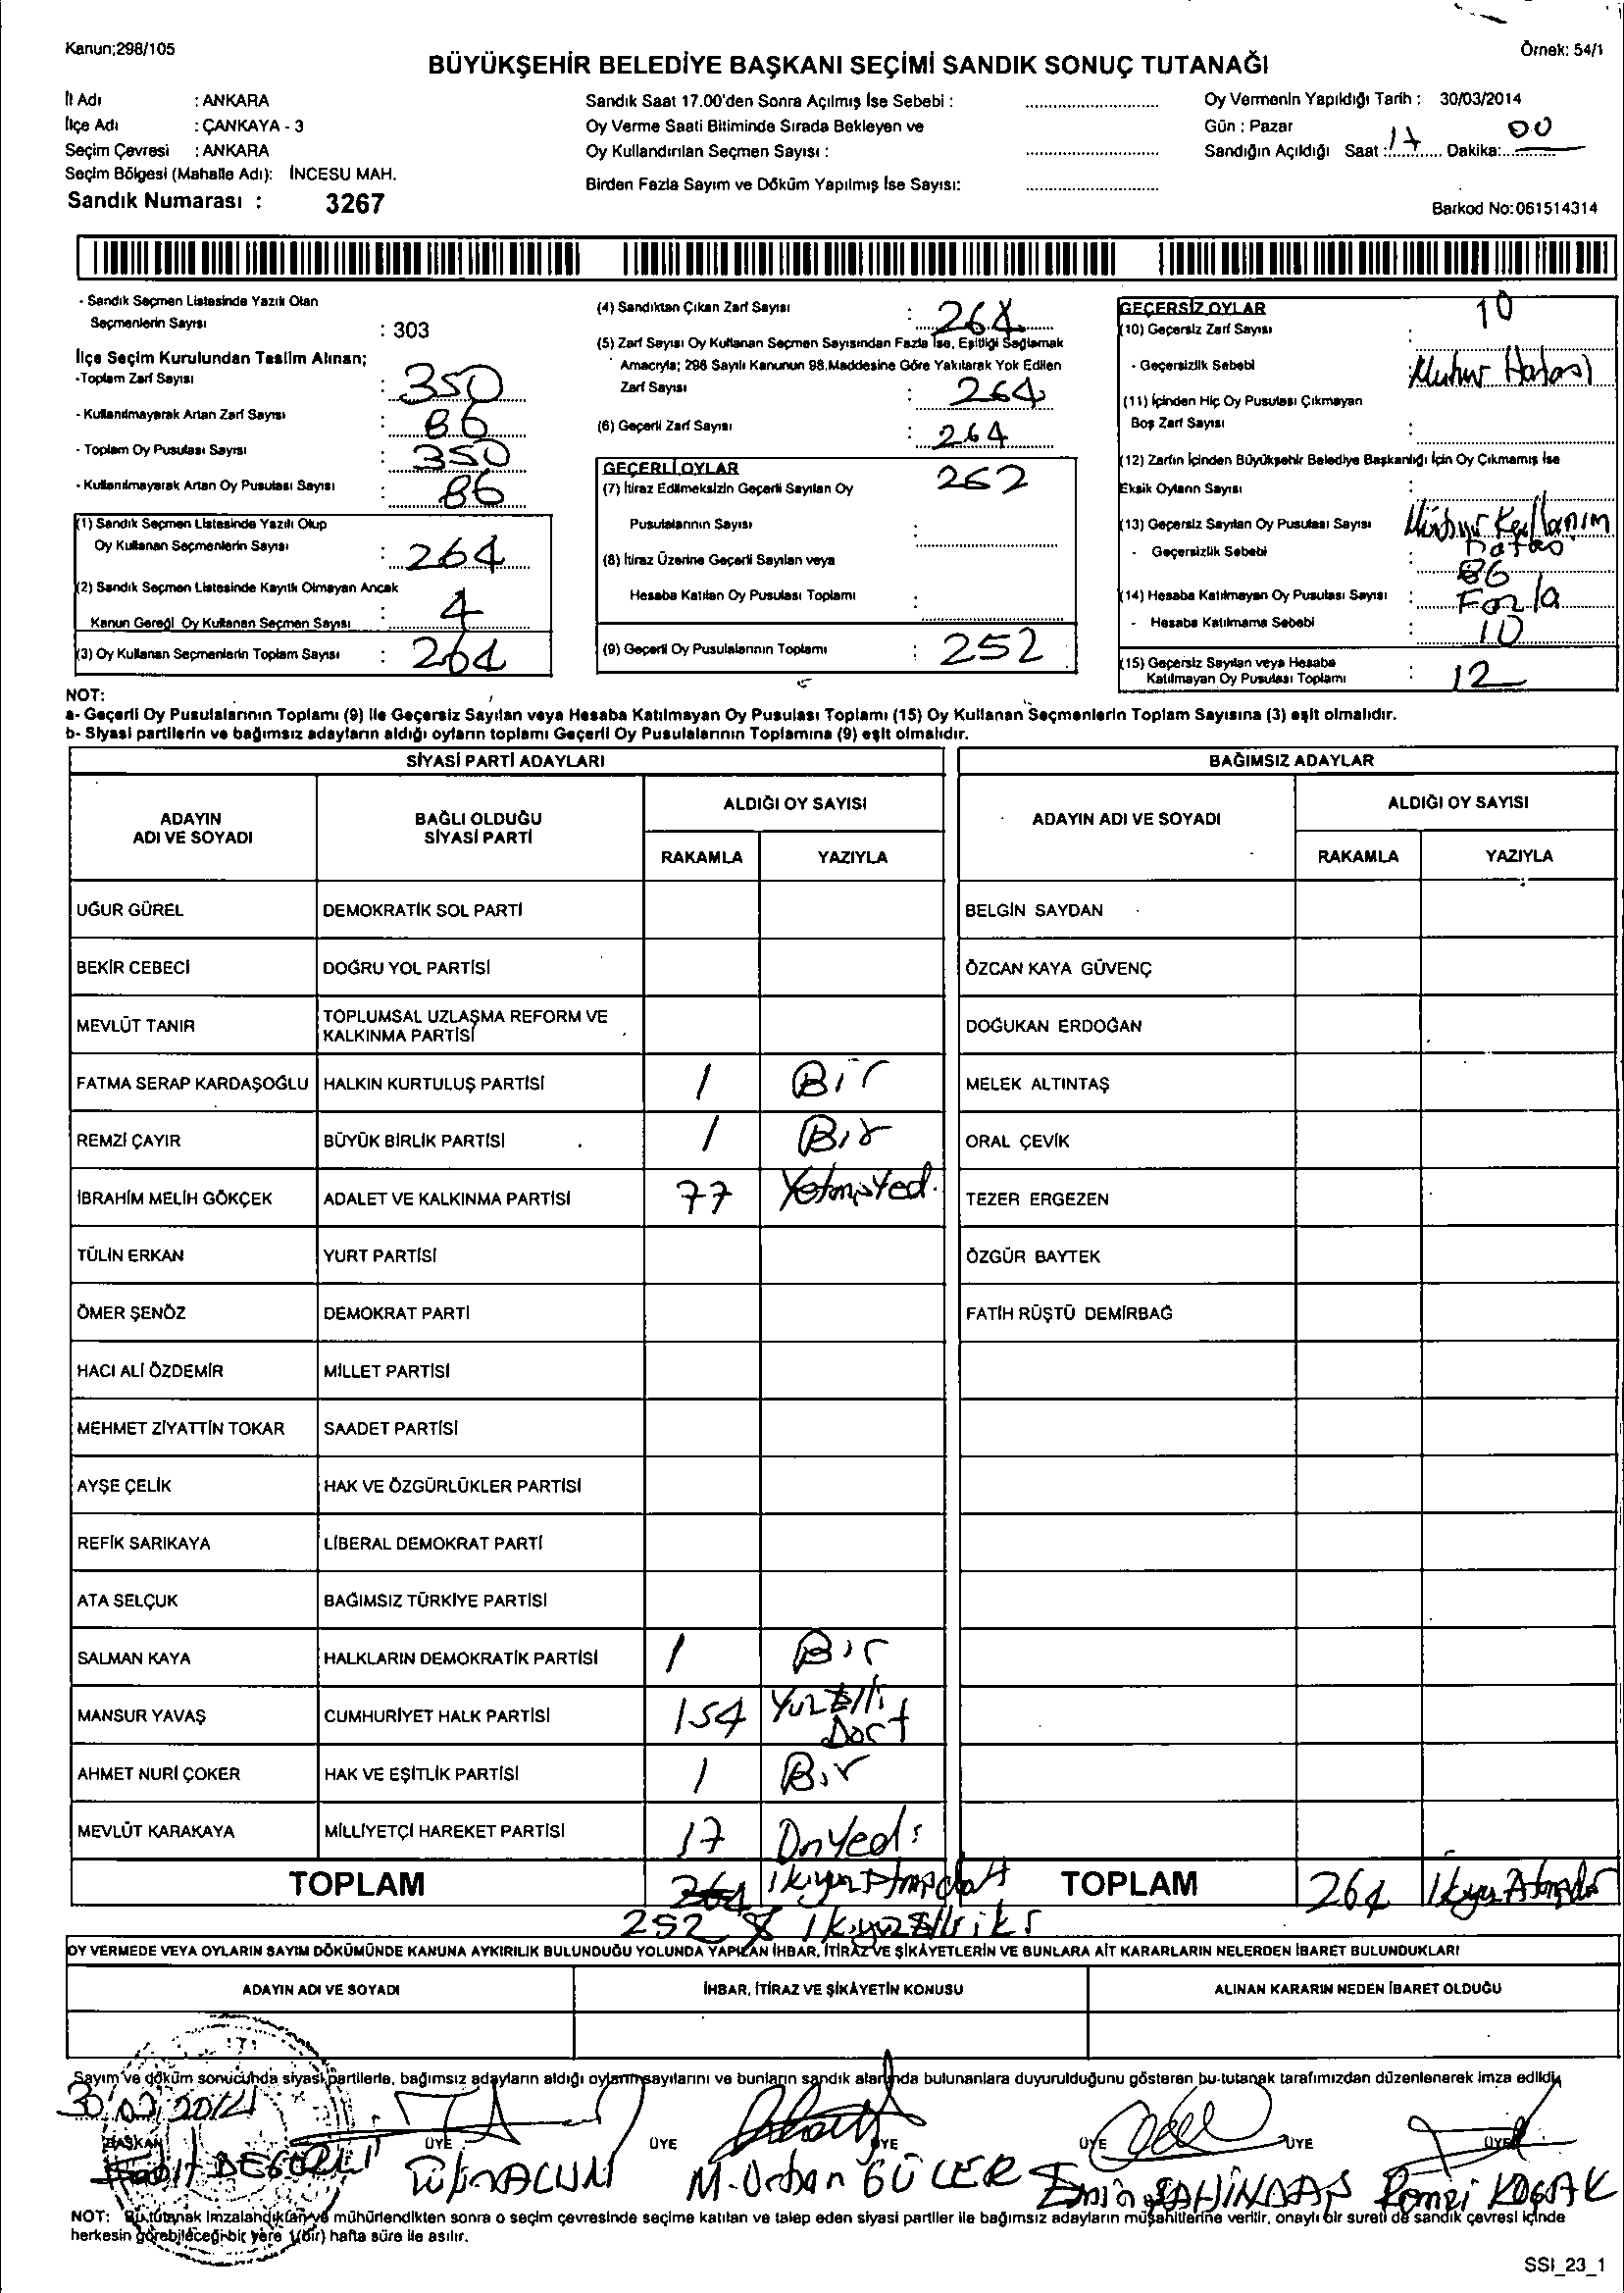 Kanun;298/105
Örnek: 54/1
BÜYÜKŞEHİR BELEDİYE BAŞKANI SEÇİMİ SANDIK SONUÇ TUTANAĞI
İl Adı : ANKARA
İlçe Adı : ÇANKAYA - 3
Seçim Çevresi : ANKARA
Seçim Bölgesi (Mahalle Adı): İNCESU MAH.
Sandık Numarası : 3267
Sandık Saat 17.00'den Sonra Açılmış İse Sebebi :
Oy Verme Saati Bitiminde Sırada Bekleyen ve
Oy Kullandırılan Seçmen Sayısı :
Birden Fazla Sayım ve Döküm Yapılmış İse Sayısı:
Oy Vermenin Yapıldığı Tarih : 30/03/2014
Gün : Pazar
Sandığın Açıldığı Saat : 17 Dakika: 00
Barkod No:061514314
- Sandık Seçmen Listesinde Yazılı Olan
Seçmenlerin Sayısı : 303
İlçe Seçim Kurulundan Teslim Alınan;
-Toplam Zarf Sayısı : 350
- Kullanılmayarak Artan Zarf Sayısı : 86
- Toplam Oy Pusulası Sayısı : 350
- Kullanılmayarak Artan Oy Pusulası Sayısı : 86
(1) Sandık Seçmen Listesinde Yazılı Olup
Oy Kullanan Seçmenlerin Sayısı : 264
(2) Sandık Seçmen Listesinde Kayıtlı Olmayan Ancak
Kanun Gereği Oy Kullanan Seçmen Sayısı : 4
(3) Oy Kullanan Seçmenlerin Toplam Sayısı : 264
(4) Sandıktan Çıkan Zarf Sayısı : 264
(5) Zarf Sayısı Oy Kullanan Seçmen Sayısından Fazla İse, Eşitliği Sağlamak
Amacıyla; 298 Sayılı Kanunun 98.Maddesine Göre Yakılarak Yok Edilen
Zarf Sayısı : 264
(6) Geçerli Zarf Sayısı : 264
GEÇERLİ OYLAR
(7) İtiraz Edilmeksizin Geçerli Sayılan Oy 252
Pusulalarının Sayısı :
(8) İtiraz Üzerine Geçerli Sayılan veya
Hesaba Katılan Oy Pusulası Toplamı :
(9) Geçerli Oy Pusulalarının Toplamı : 252
GEÇERSİZ OYLAR 10
(10) Geçersiz Zarf Sayısı :
- Geçersizlik Sebebi Muhur Hatası
(11) İçinden Hiç Oy Pusulası Çıkmayan
Boş Zarf Sayısı :
(12) Zarfın İçinden Büyükşehir Belediye Başkanlığı İçin Oy Çıkmamış İse
Eksik Oyların Sayısı :
(13) Geçersiz Sayılan Oy Pusulası Sayısı
- Geçersizlik Sebebi :
86
(14) Hesaba Katılmayan Oy Pusulası Sayısı : Fazla
- Hesaba Katılmama Sebebi : 10
(15) Geçersiz Sayılan veya Hesaba
Katılmayan Oy Pusulası Toplamı : 12
NOT:
a- Geçerli Oy Pusulalarının Toplamı (9) ile Geçersiz Sayılan veya Hesaba Katılmayan Oy Pusulası Toplamı (15) Oy Kullanan Seçmenlerin Toplam Sayısına (3) eşit olmalıdır.
b- Siyasi partilerin ve bağımsız adayların aldığı oyların toplamı Geçerli Oy Pusulalarının Toplamına (9) eşit olmalıdır.
SİYASİ PARTİ ADAYLARI
BAĞIMSIZ ADAYLAR
ADAYIN
ADI VE SOYADI
BAĞLI OLDUĞU
SİYASİ PARTİ
ALDIĞI OY SAYISI
RAKAMLA YAZIYLA
ADAYIN ADI VE SOYADI
ALDIĞI OY SAYISI
RAKAMLA YAZIYLA
UĞUR GÜREL DEMOKRATİK SOL PARTİ BELGİN SAYDAN
BEKİR CEBECİ DOĞRU YOL PARTİSİ ÖZCAN KAYA GÜVENÇ
MEVLÜT TANIR TOPLUMSAL UZLAŞMA REFORM VE
KALKINMA PARTİSİ DOĞUKAN ERDOĞAN
FATMA SERAP KARDAŞOĞLU HALKIN KURTULUŞ PARTİSİ 1 Bir MELEK ALTINTAŞ
REMZİ ÇAYIR BÜYÜK BİRLİK PARTİSİ 1 Bir ORAL ÇEVİK
İBRAHİM MELİH GÖKÇEK ADALET VE KALKINMA PARTİSİ 77 TEZER ERGEZEN
TÜLİN ERKAN YURT PARTİSİ ÖZGÜR BAYTEK
ÖMER ŞENÖZ DEMOKRAT PARTİ FATİH RÜŞTÜ DEMİRBAĞ
HACI ALİ ÖZDEMİR MİLLET PARTİSİ
MEHMET ZİYATTİN TOKAR SAADET PARTİSİ
AYŞE ÇELİK HAK VE ÖZGÜRLÜKLER PARTİSİ
REFİK SARIKAYA LİBERAL DEMOKRAT PARTİ
ATA SELÇUK BAĞIMSIZ TÜRKİYE PARTİSİ
SALMAN KAYA HALKLARIN DEMOKRATİK PARTİSİ 1 Bir
MANSUR YAVAŞ CUMHURİYET HALK PARTİSİ 154 Yuz Elli
Dort
AHMET NURİ ÇOKER HAK VE EŞİTLİK PARTİSİ 1 Bir
MEVLÜT KARAKAYA MİLLİYETÇİ HAREKET PARTİSİ 17 OnYedi
TOPLAM 264 TOPLAM 264
252
OY VERMEDE VEYA OYLARIN SAYIM DÖKÜMÜNDE KANUNA AYKIRILIK BULUNDUĞU YOLUNDA YAPILAN İHBAR, İTİRAZ VE ŞİKÂYETLERİN VE BUNLARA AİT KARARLARIN NELERDEN İBARET BULUNDUKLARI
ADAYIN ADI VE SOYADI İHBAR, İTİRAZ VE ŞİKÂYETİN KONUSU ALINAN KARARIN NEDEN İBARET OLDUĞU
Sayım ve döküm sonucunda siyasi partilerle, bağımsız adayların aldığı oyların sayılarını ve bunların sandık alanında bulunanlara duyurulduğunu gösteren bu tutanak tarafımızdan düzenlenerek imza edildi.
BAŞKAN ÜYE ÜYE ÜYE ÜYE ÜYE ÜYE
M. Orhan GÜLER
NOT: Bu tutanak İmzalandıktan ve mühürlendikten sonra o seçim çevresinde seçime katılan ve talep eden siyasi partiler ile bağımsız adayların müşahitlerine verilir, onaylı bir sureti de sandık çevresi içinde
herkesin görebileceği bir yere 1(bir) hafta süre ile asılır.
SSI_23_1